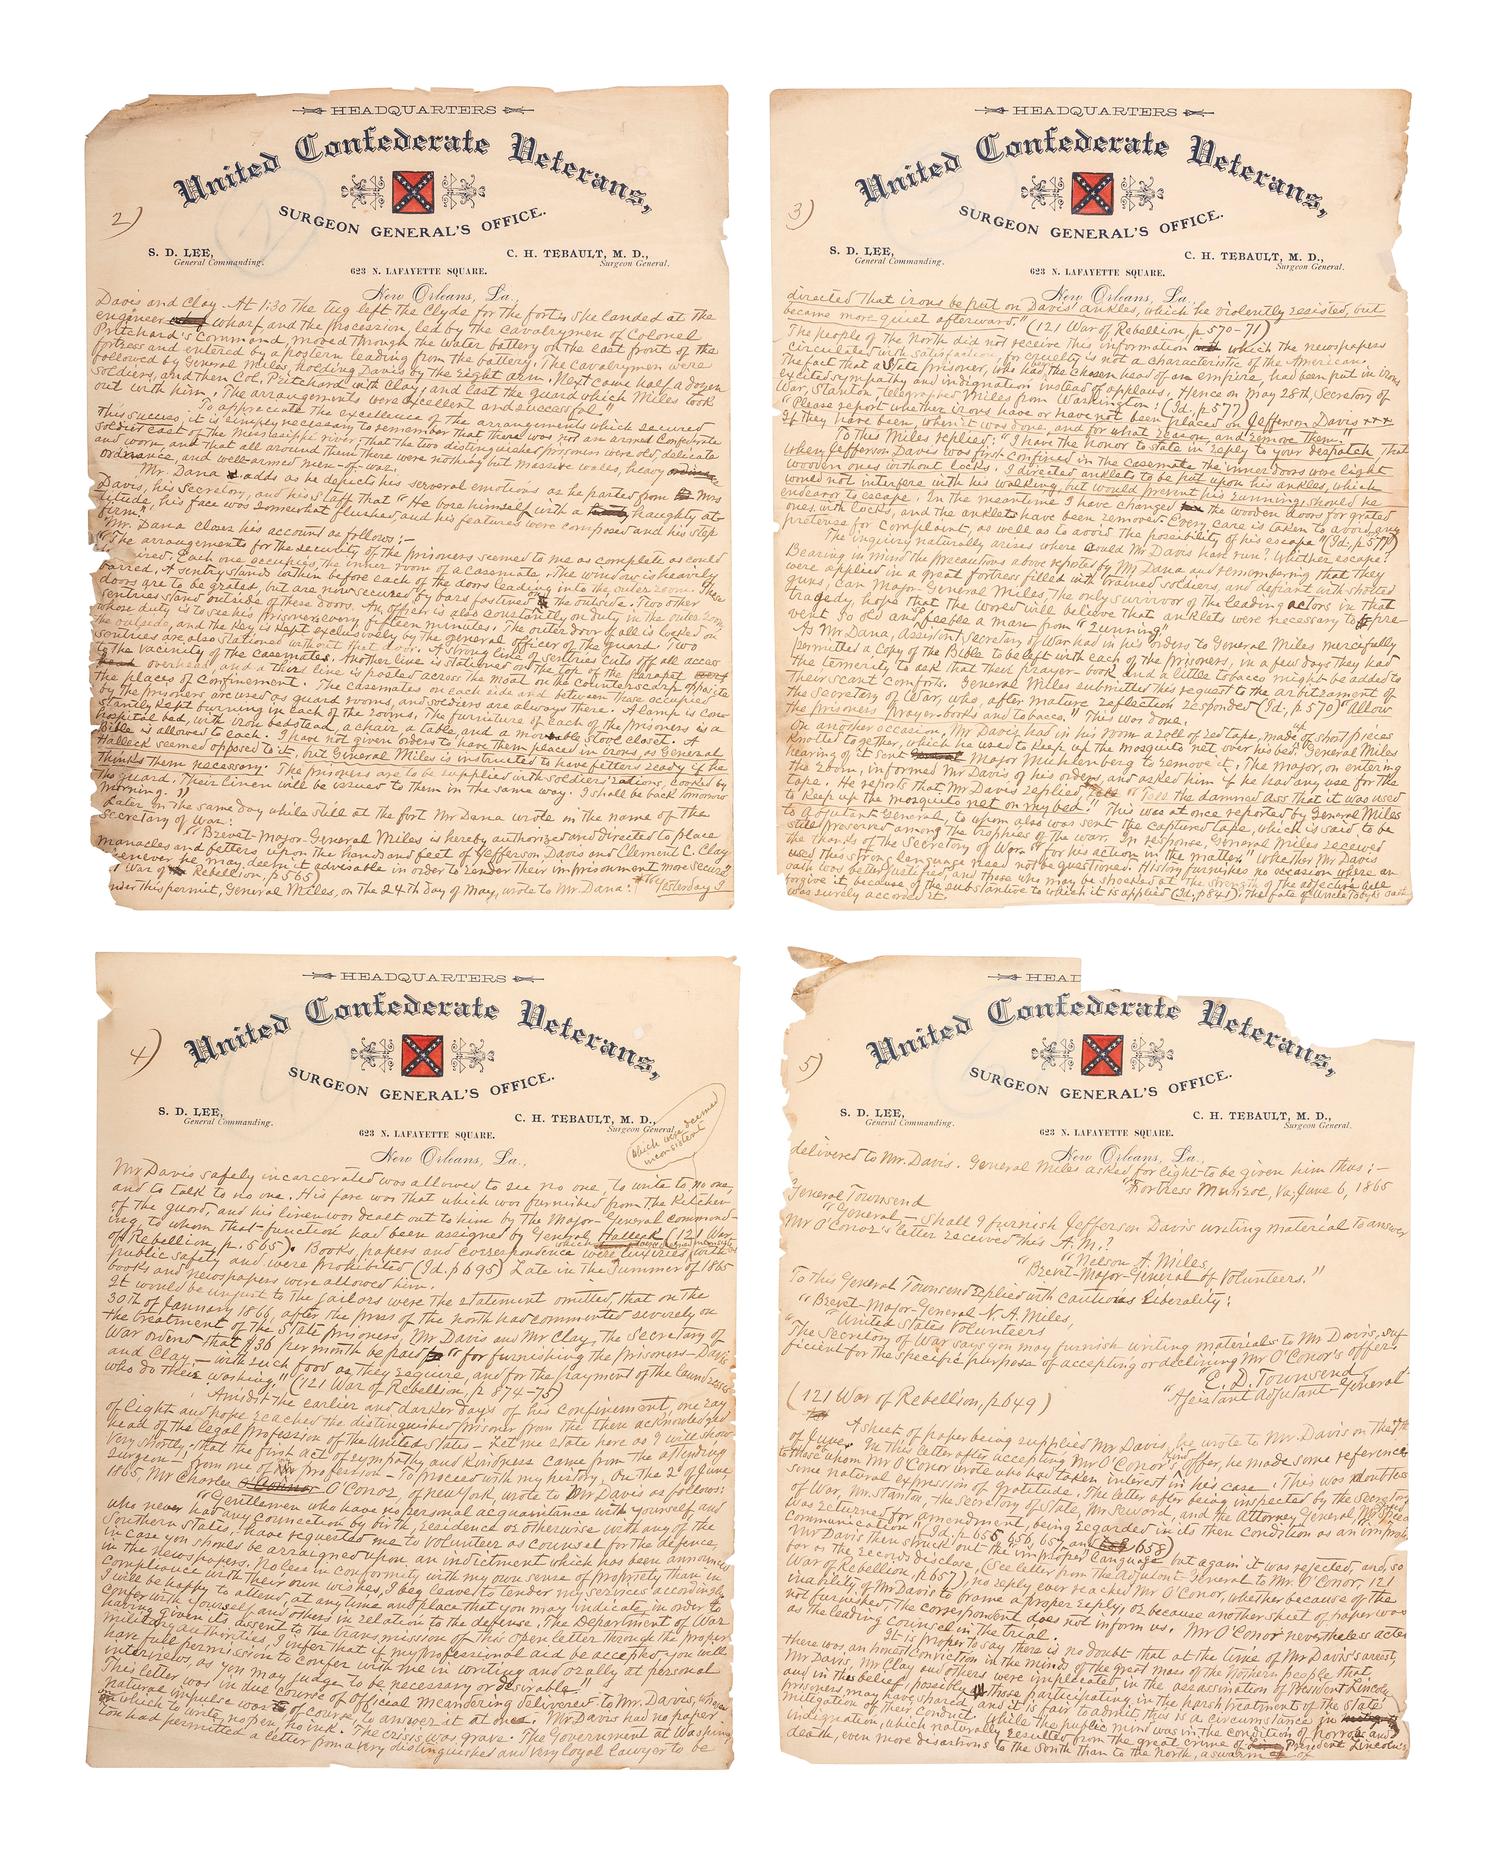 HEADQUARTERS
United Confederate Veterans,
SURGEON GENERAL'S OFFICE.
2)
S. D. LEE,
General Commanding.
C. H. TEBAULT, M. D.,
Surgeon General.
623 N. LAFAYETTE SQUARE.
New Orleans, La.,
Davis and Clay. At 1:30 the tug left the Clyde for the fort. She landed at the
engineer wharf and the procession, led by the cavalrymen of Colonel
Pritchard's command, moved through the water battery on the east front of the
fortress and entered by a postern leading from the battery. The cavalrymen were
followed by General Miles, holding Davis by the right arm. Next came half a dozen
soldiers, and then Col. Pritchard with Clay, and last the guard which Miles took
out with him. The arrangements were excellent and successful."
To appreciate the excellence of the arrangements which secured
this success, it is simply necessary to remember that there was not an armed Confederate
soldier east of the Mississippi river, that the two distinguished prisoners were old, delicate
and worn, and that all around them there were nothing but massive walls, heavy
ordnance, and well-armed men-of-war.
Mr. Dana adds as he depicts his several emotions as he parted from Mrs
Davis, his Secretary, and his staff that "He bore himself with a haughty at-
titude, his face was somewhat flushed, and his features were composed and his step
firm."
Mr. Dana closes his account as follows:-
"The arrangements for the security of the prisoners seemed to me as complete as could
desired. Each one occupies the inner room of a casemate. The window is heavily
barred. A sentry stands within before each of the doors leading into the outer room. These
doors are to be grated, but are now secured by bars fastened on the outside. Two other
sentries stand outside of these doors. An officer is also constantly on duty in the outer room
whose duty is to see his prisoners every fifteen minutes. The outer door of all is locked on
the outside, and the key is kept exclusively by the general officer of the guard. Two
sentries are also stationed without that door. A strong line of sentries cuts off all access
to the vicinity of the casemates. Another line is stationed on the top of the parapet
overhead, and a third line is posted across the moat on the counterscarp opposite
the places of confinement. The casemates on each side and between those occupied
by the prisoners are used as guard rooms, and soldiers are always there. A lamp is con-
stantly kept burning in each of the rooms. The furniture of each of the prisoners is a
hospital bed, with iron bedstead, a chair, a table, and a movable stool closet. A
Bible is allowed to each. I have not given orders to have them placed in irons, as General
Halleck seemed opposed to it, but General Miles is instructed to have fetters ready if he
thinks them necessary. The prisoners are to be supplied with soldiers' rations, cooked by
the guard. Their linen will be issued to them in the same way. I shall be back tomorrow
morning."
Later in the same day while still at the fort Mr Dana wrote in the name of the
Secretary of War:
"Brevet-Major-General Miles is hereby authorized and directed to place
manacles and fetters upon the hands and feet of Jefferson Davis and Clement C. Clay
whenever he may deem it advisable in order to render their imprisonment more secure"
War of Rebellion, p 565)
Under this permit, General Miles, on the 24th day of May, wrote to Mr. Dana: "Yesterday I
HEADQUARTERS
United Confederate Veterans,
SURGEON GENERAL'S OFFICE.
3)
S. D. LEE,
General Commanding.
C. H. TEBAULT, M. D.,
Surgeon General.
623 N. LAFAYETTE SQUARE.
New Orleans, La.,
directed that irons be put on Davis' ankles, which he violently resisted, but
became more quiet afterward." (121 War of Rebellion, p 570-71)
The people of the North did not receive this information which the newspapers
circulated with satisfaction, for cruelty is not a characteristic of the American.
The fact that a State prisoner, who had the chosen head of an empire, had been put in irons
excited sympathy and indignation instead of applause. Hence on May 28th, Secretary of
War, Stanton, telegraphed Miles from Washington: (Id. p 577)
"Please report whether irons have or have not been placed on Jefferson Davis ***
If they have been, when it was done, and for what reason, and remove them."
To this Miles replied: "I have the honor to state in reply to your despatch that
when Jefferson Davis was first confined in the casemate the inner doors were light
wooden ones without locks. I directed anklets to be put upon his ankles, which
would not interfere with his walking, but would prevent his running, should he
endeavor to escape. In the meantime I have changed the wooden doors for grated
ones with locks, and the anklets have been removed. Every care is taken to avoid any
pretense for complaint, as well as to avoid the possibility of his escape" (Id., p 577)
The inquiry naturally arises where could Mr Davis have run? Whither escape?
Bearing in mind the precautions above reported by Mr Dana and remembering that they
were applied in a great fortress filled with trained soldiers, and defiant with shotted
guns, can Major-General Miles, the only survivor of the leading actors in that
tragedy, hope that the world will believe that anklets were necessary to pre-
vent so old and feeble a man from "running."
As Mr Dana, Assistant Secretary of War had in his orders to General Miles mercifully
permitted a copy of the Bible to be left with each of the prisoners, in a few days they had
the temerity to ask that their prayer-book and a little tobacco might be added to
their scant comforts. General Miles submitted this request to the arbitrament of
the Secretary of War, who, after mature reflection responded (Id., p 570) "Allow
the prisoners prayer-books and tobacco." This was done.
On another occasion, Mr Davis had in his room a roll of red tape, made of short pieces
knotted together, which he used to keep up the mosquito net over his bed. General Miles
hearing of it sent Major Muhlenberg to remove it. The major, on entering
the room, informed Mr Davis of his orders, and asked him if he had any use for the
tape. He reports that Mr Davis replied "Tell the damned ass that it was used
to keep up the mosquito net on my bed." This was at once reported by General Miles
to Adjutant General, to whom also was sent the captured tape, which is said to be
still preserved among the trophies of the war. In response, General Miles received
the thanks of the Secretary of War "for his action in the matter." Whether Mr Davis
used this strong language need not be questioned. History furnishes no occasion where an
oath was better justified, and those who may be shocked at the strength of the adjective will
forgive it, because of the substantive to which it is applied (Id., p 841). The fate of Uncle Toby's oath
was surely accorded it.
HEADQUARTERS
United Confederate Veterans,
SURGEON GENERAL'S OFFICE.
4)
S. D. LEE,
General Commanding.
C. H. TEBAULT, M. D.,
Surgeon General.
623 N. LAFAYETTE SQUARE.
New Orleans, La.,
which were deemed
inconsistent
Mr Davis safely incarcerated was allowed to see no one, to write to no one,
and to talk to no one. His fare was that which was furnished from the kitchen
of the guard, and his linen was dealt out to him by the Major-General command-
ing, to whom that function had been assigned by General Halleck (121 War
of Rebellion, p. 565). Books, papers and correspondence with
public safety and were prohibited (Id. p 695) Late in the Summer of 1865
books and newspapers were allowed him.
It would be unjust to the jailors were the statement omitted, that on the
30th of January 1866, after the press of the north had commented severely on
the treatment of the State prisoners, Mr Davis and Mr Clay, the Secretary of
War ordered that $30 per month be paid "for furnishing the prisoners - Davis
and Clay - with such food as they require, and for the payment of the laundresses
who do their washing." (121 War of Rebellion, p 874-75)
Amidst the earlier and darker days of his confinement, one ray
of light and hope reached the distinguished prisoner from the then acknowledged
head of the legal profession of the United States - Let me state here as I will show
very shortly, that the first act of sympathy and kindness came from the attending
surgeon - from one of our profession - To proceed with my history. On the 2d of June
1865, Mr Charles O'Conor, of New York, wrote to Mr Davis as follows:
"Gentlemen who have no personal acquaintance with yourself, and
who never had any connection by birth, residence or otherwise with any of the
Southern States, have requested me to volunteer as counsel for the defence,
in case you should be arraigned upon an indictment which has been announced
in the newspapers. No less in conformity with my own sense of propriety than in
compliance with their own wishes, I beg leave to tender my services accordingly.
I will be happy to attend, at any time and place that you may indicate, in order to
confer with yourself and others in relation to the defense. The Department of War
having given its assent to the transmission of this open letter through the proper
military authorities, I infer that if my professional aid be accepted you will
have full permission to confer with me in writing and orally at personal
interviews, as you may judge to be necessary or desirable."
This letter was in due course of official meandering delivered to Mr. Davis, whose
natural impulse was of course, to answer it at once. Mr Davis had no paper
on which to write, no pen, no ink. The crisis was grave. The Government at Washing
ton had permitted a letter from a very distinguished and very loyal lawyer to be
HEAD
United Confederate Veterans,
SURGEON GENERAL'S OFFICE.
5)
S. D. LEE,
General Commanding.
C. H. TEBAULT, M. D.,
Surgeon General.
623 N. LAFAYETTE SQUARE.
New Orleans, La.,
delivered to Mr. Davis. General Miles asked for light to be given him thus:-
"Fortress Munroe, Va, June 6, 1865
General Townsend
"General - Shall I furnish Jefferson Davis writing material to answer
Mr O'Conor's letter received this A.M.?
"Nelson A. Miles,
"Brevet-Major-General of Volunteers."
To this General Townsend replied with cautious liberality:
"Brevet-Major-General N. A. Miles,
"United States Volunteers
"The Secretary of War says you may furnish writing materials to Mr Davis, suf
ficient for the specific purpose of accepting or declining Mr O'Conor's offer.
"E. D. Townsend
"Assistant Adjutant-General"
(121 War of Rebellion, p 649)
A sheet of paper being supplied Mr Davis, he wrote to Mr. Davis on the 7th
of June. In this letter after accepting Mr O'Conor's kind offer, he made some reference
to those of whom Mr O'Conor wrote who had taken interest in his case. This was doubtless
some natural expression of gratitude. The letter after being inspected by the Secretary
of War, Mr. Stanton, the Secretary of State, Mr. Seward, and the Attorney General,
was returned for amendment, being regarded in its then condition as an improper
communication" (Id., p 655, 656, 657 and 658)
Mr Davis then struck out the improper language but again it was rejected, and, so
far as the records disclose, (See letter from the Adjutant General to Mr. O'Conor, 121
War of Rebellion p 657), no reply ever reached Mr O'Conor, whether because of the
inability of Mr Davis to frame a proper reply, or because another sheet of paper was
not furnished, the correspondent does not inform us. Mr O'Conor nevertheless acted
as the leading counsel in the trial.
It is proper to say there is no doubt that at the time of Mr Davis's arrest,
there was an honest conviction in the minds of the great mass of the Northern people that
Mr Davis, Mr Clay and others were implicated in the assassination of President Lincoln,
and in this belief, possibly those participating in the harsh treatment of the State
prisoners may have shared, and it is fair to admit this is a circumstance in
mitigation of their conduct. While the public mind was in the condition of horror and
indignation, which naturally resulted from the great crime of President Lincoln's
death, even more disastrous to the South than to the North, a swarm of